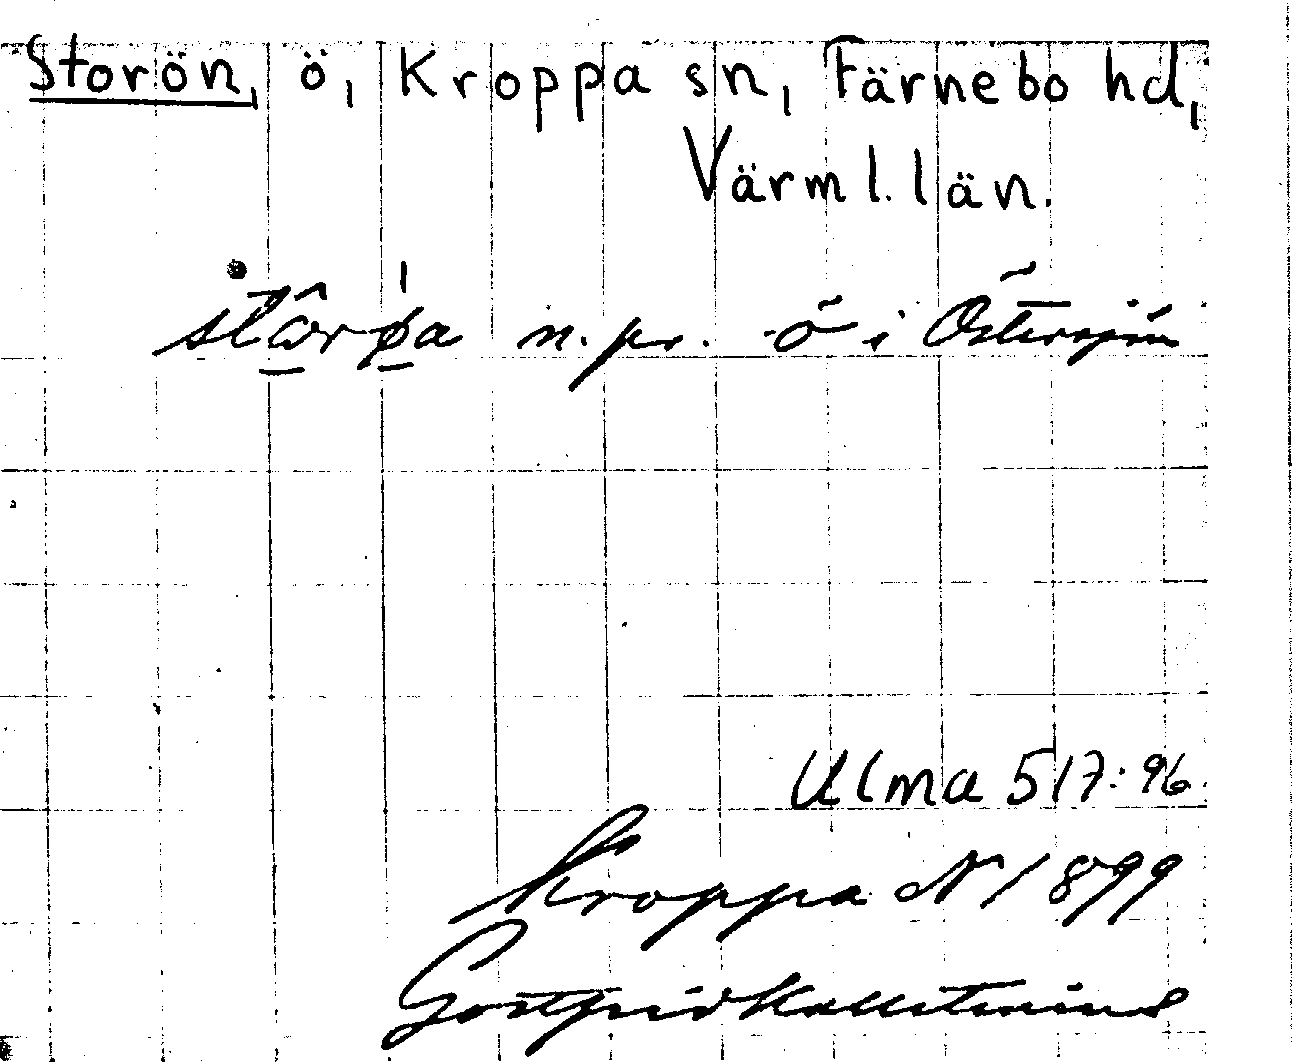 Storön, ö, Kroppa sn, Färnebo hd,
Värml. län.
n. pr. ö i Östersjön
Ulma 517:96.
Kroppa N 1899
Gottfrid Kallstenius